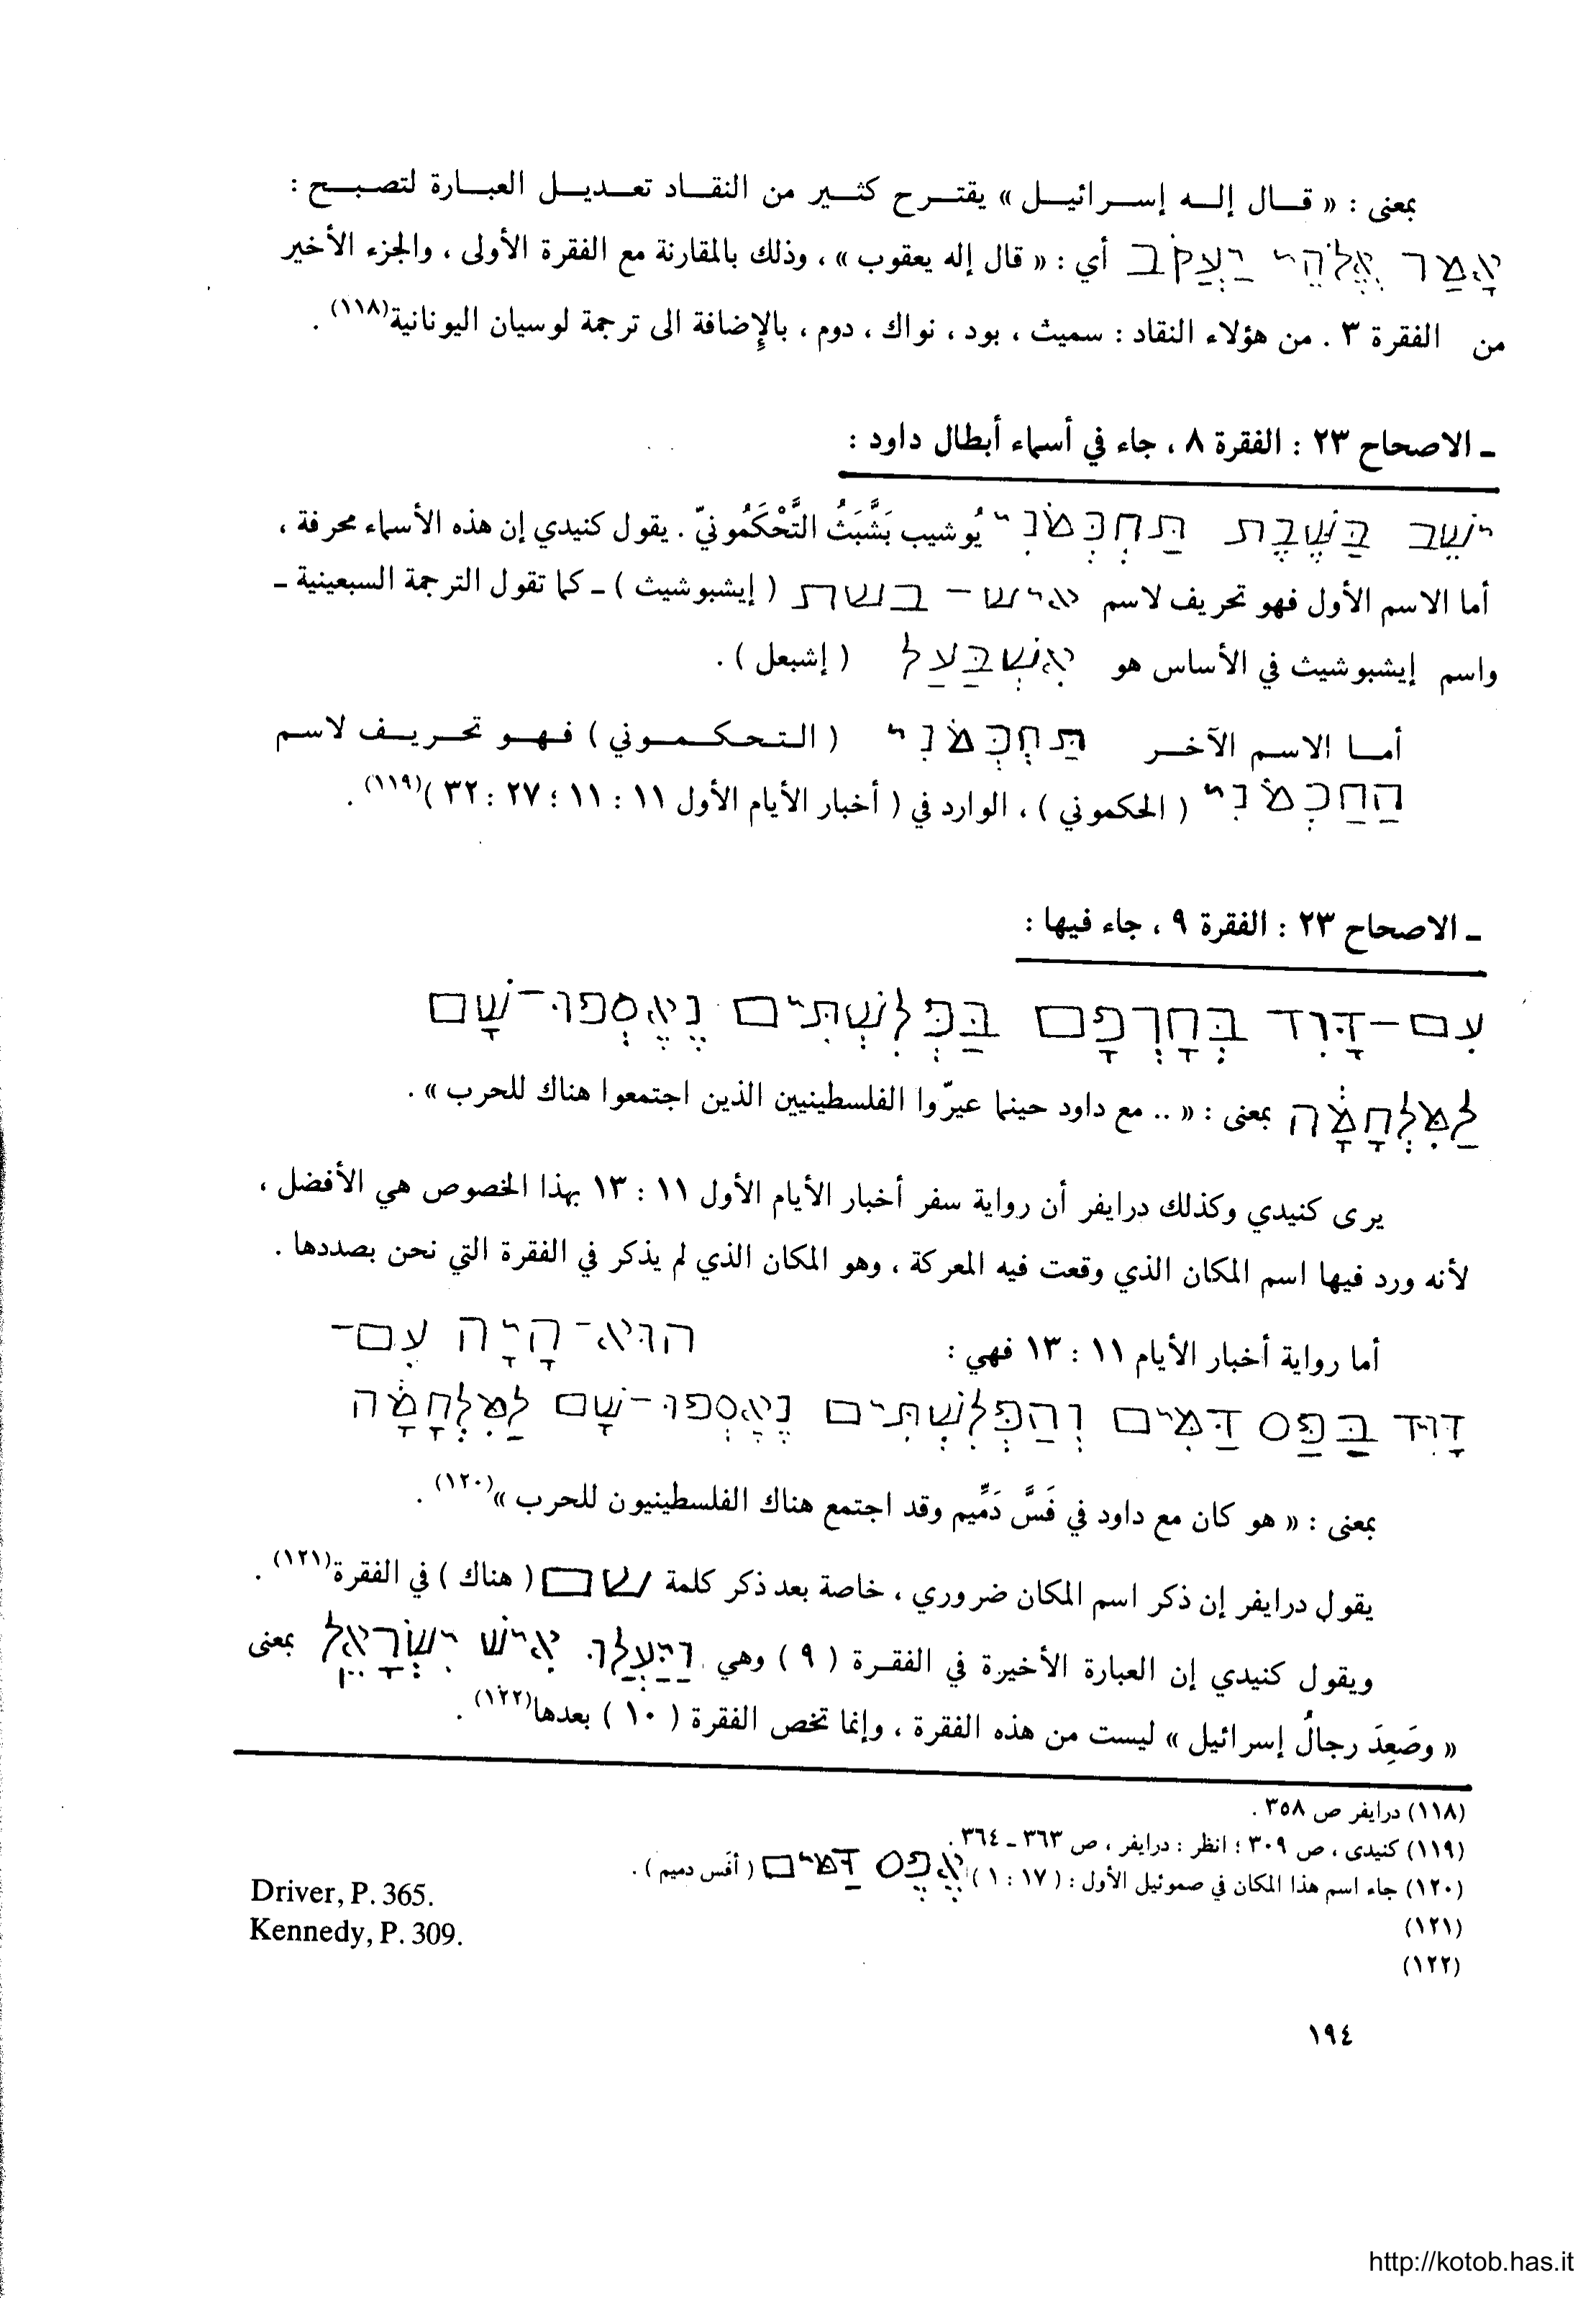 بمعنى : « قـــال إلـــه إســـرائيـــل » يقتـــرح كثـــير من النقـــاد تعـــديـــل العبـــارة لتصبـــح :
אָמַר אֱלֹהֵי יַעֲקֹב أي : « قال إله يعقوب » ، وذلك بالمقارنة مع الفقرة الأولى ، والجزء الأخير
من الفقرة ٣ . من هؤلاء النقاد : سميث ، بود ، نواك ، دوم ، بالإضافة الى ترجمة لوسيان اليونانية(١١٨) .
ـ الاصحاح ٢٣ : الفقرة ٨ ، جاء في أسماء أبطال داود :
ישֵׁב בַּשֶּׁבֶת תַּחְכְּמֹנִי يُوشيب بَشَّبَثُ التَّحْكَمُونيّ . يقول كنيدي إن هذه الأسماء محرفة ،
أما الاسم الأول فهو تحريف لاسم איש – בשת ( إيشبوشيث ) ـ كما تقول الترجمة السبعينية ـ
واسم إيشبوشيث في الأساس هو אִשְׁבַּעַל ( إشبعل ) .
أمـــا الاســـم الآخـــر תַּחְכְּמֹנִי ( التـحـكـمـوني ) فـهـو تحـريـف لاسـم
הַחַכְמֹנִי ( الحكموني ) ، الوارد في ( أخبار الأيام الأول ١١ : ١١ ؛ ٢٧ : ٣٢ )(١١٩) .
ـ الاصحاح ٢٣ : الفقرة ٩ ، جاء فيها :
עִם–דָּוִד בְּחָרְפָם בַּפְּלִשְׁתִּים נֶאֶסְפוּ–שָׁם
לַמִּלְחָמָה بمعنى : « .. مع داود حينما عيرّوا الفلسطينيين الذين اجتمعوا هناك للحرب » .
يرى كنيدي وكذلك درايفر أن رواية سفر أخبار الأيام الأول ١١ : ١٣ بهذا الخصوص هي الأفضل ،
لأنه ورد فيها اسم المكان الذي وقعت فيه المعركة ، وهو المكان الذي لم يذكر في الفقرة التي نحن بصددها .
أما رواية أخبار الأيام ١١ : ١٣ فهي : הוּא–הָיָה עִם–
דָּוִיד בַּפַּס דַּמִּים וְהַפְּלִשְׁתִּים נֶאֶסְפוּ–שָׁם לַמִּלְחָמָה
بمعنى : « هو كان مع داود في فَسَّ دَمِّيم وقد اجتمع هناك الفلسطينيون للحرب »(١٢٠) .
يقول درايفر إن ذكر اسم المكان ضروري ، خاصة بعد ذكر كلمة שם ( هناك ) في الفقرة(١٢١) .
ويقول كنيدي إن العبارة الأخيرة في الفقـرة ( ٩ ) وهي וַיַּעֲלוּ אִישׁ יִשְׂרָאֵל بمعنى
« وصَعِدَ رجالُ إسرائيل » ليست من هذه الفقرة ، وإنما تخص الفقرة ( ١٠ ) بعدها(١٢٢) .
(١١٨) درايفر ص ٣٥٨ .
(١١٩) كنيدى ، ص ٣٠٩ ؛ انظر : درايفر ، ص ٣٦٣ ـ ٣٦٤ .
(١٢٠) جاء اسم هذا المكان في صموئيل الأول : ( ١٧ : ١ ) אֶפֶס דַּמִּים ( أفَس دميم ) .
(١٢١) Driver, P. 365.
(١٢٢) Kennedy, P. 309.
١٩٤
http://kotob.has.it